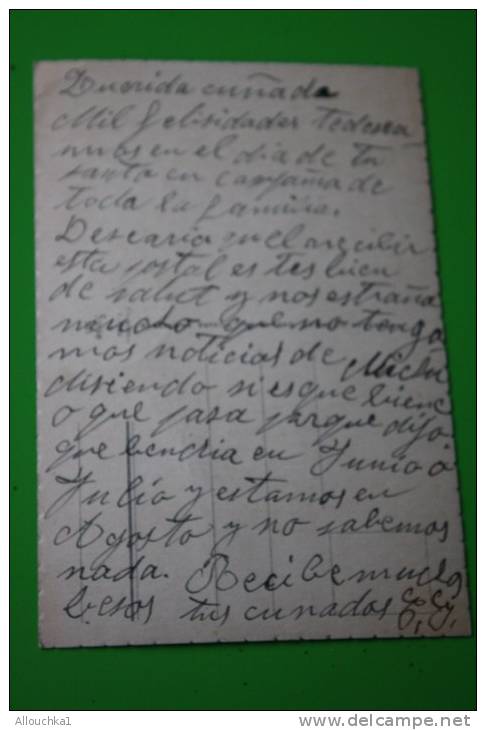 Querida cuñada
Mil felisidades te desea
mos en el dia de tu
santo en compañia de
toda la familia.
Desearia que el recibir
esta postal estes bien
de salut y nos estraña
mucho que no tenga
mos noticias de Michel
disiendo si es que biene
o que pasa porque dijo
que bendria en Junio o
Julio y estamos en
Agosto y no sabemos
nada. Recibe muchos
besos tus cunados
Allouchka1
http://www.delcampe.net